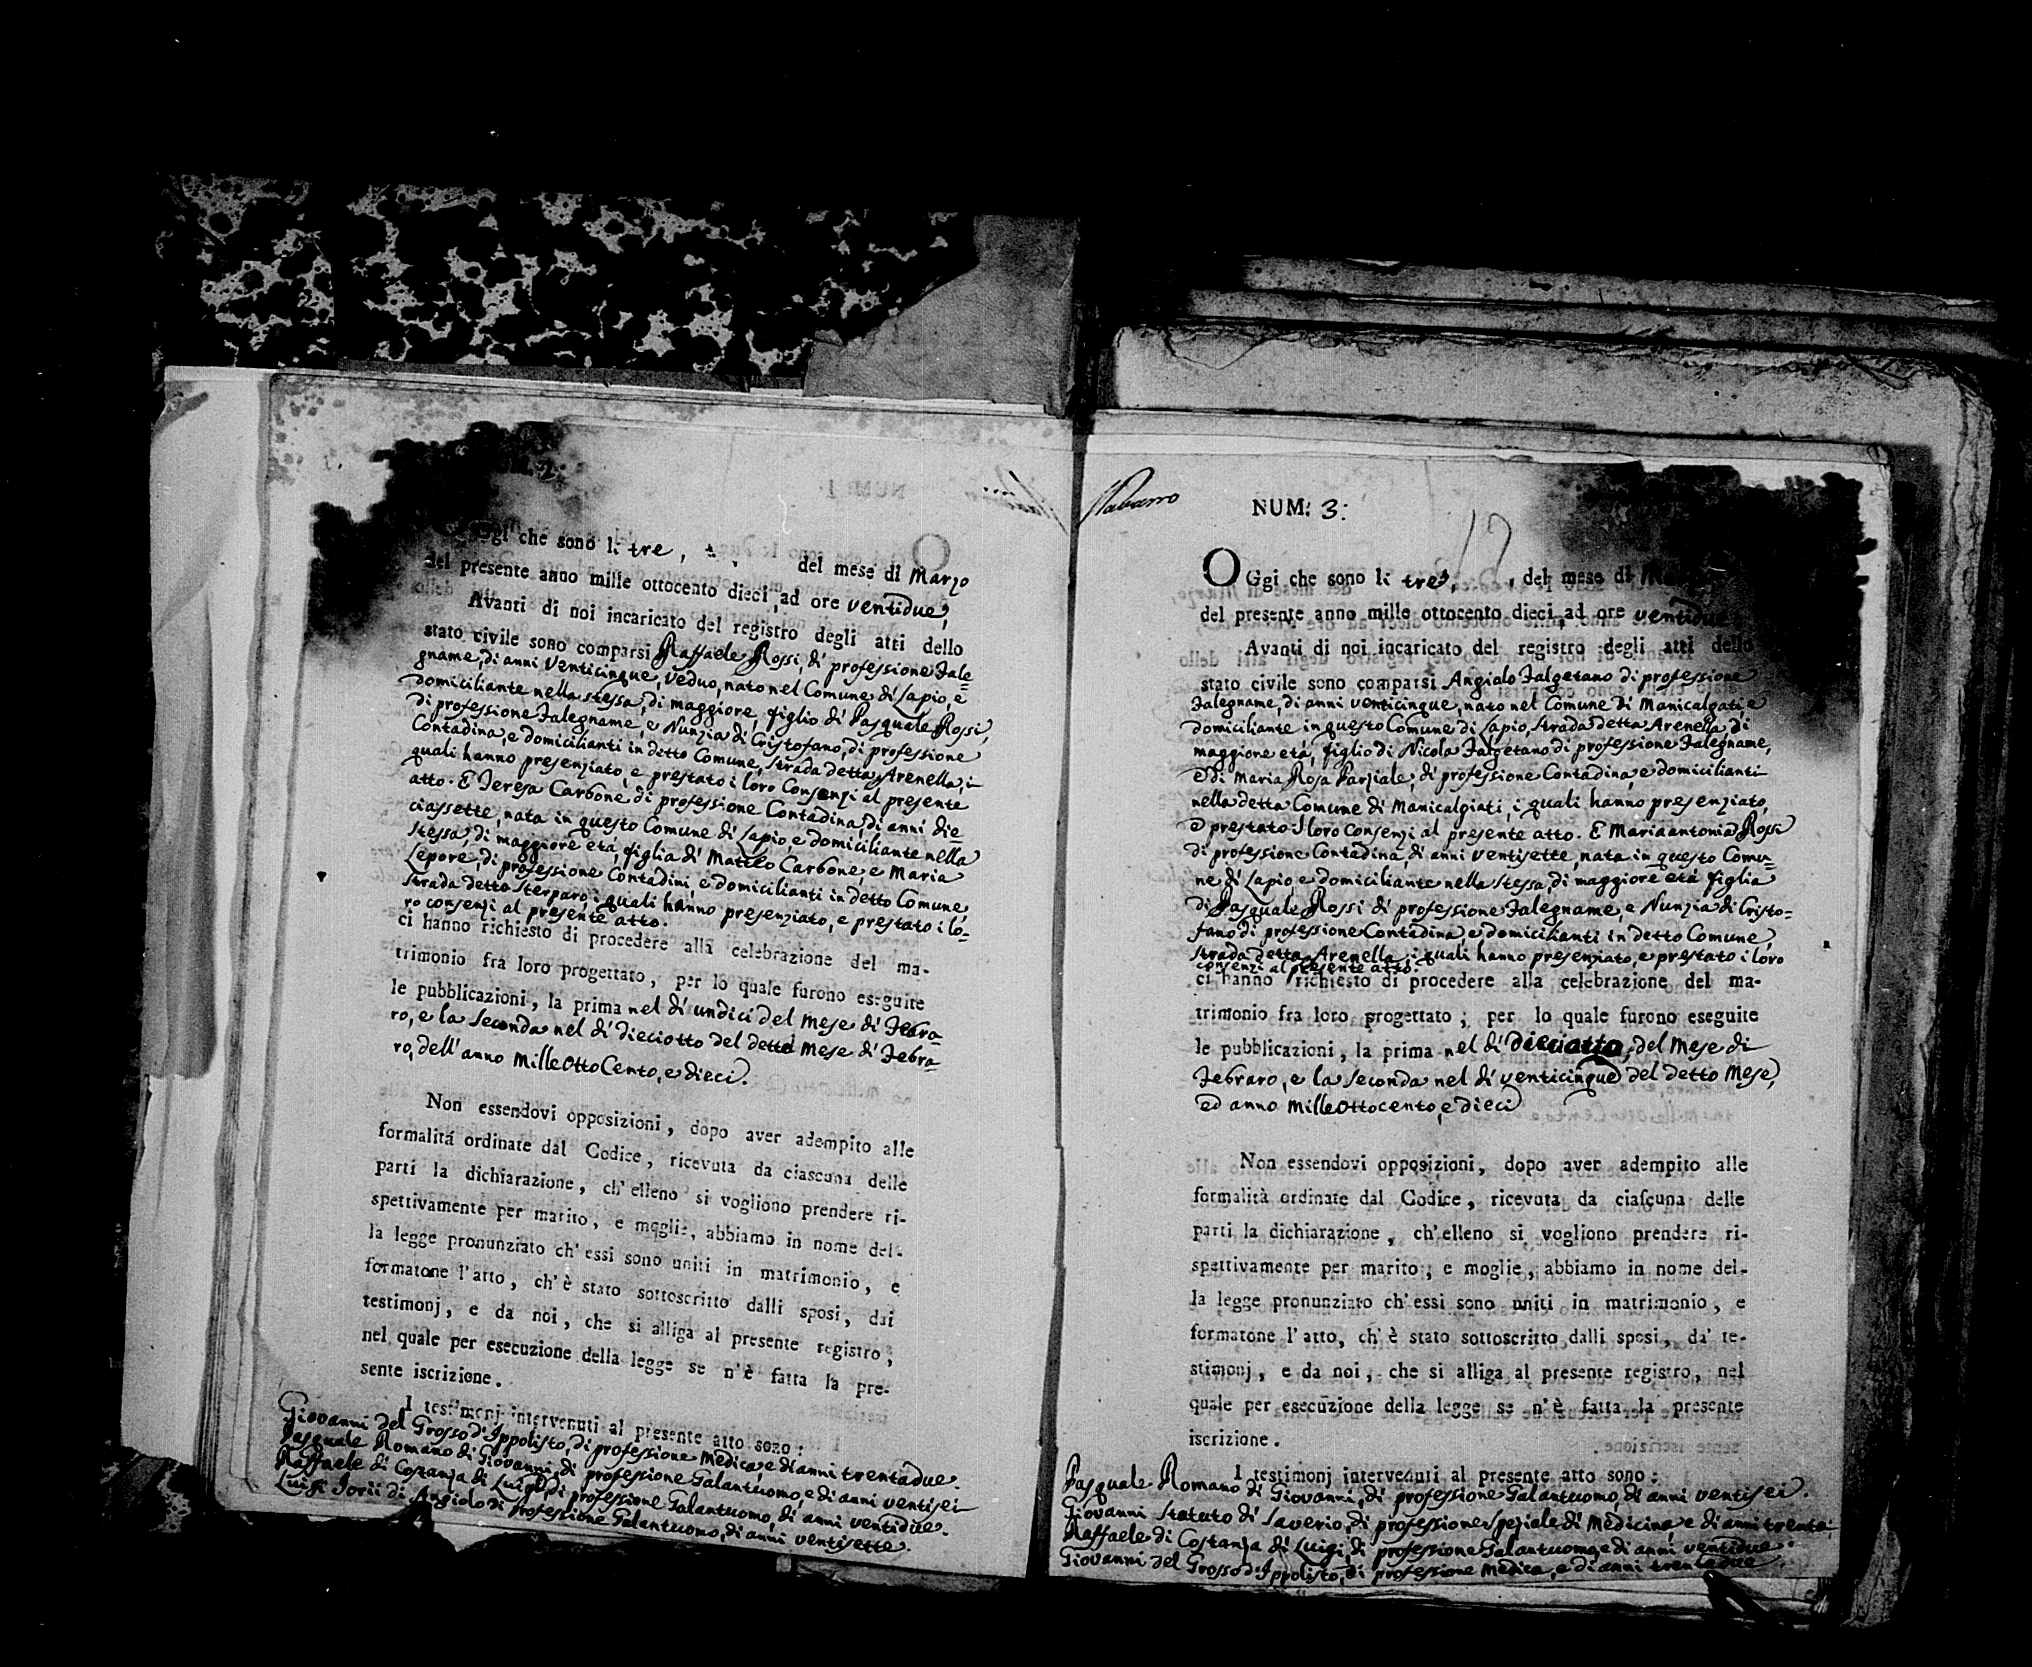 2:
Oggi che sono li tre, del mese di Marzo
del presente anno mille ottocento dieci, ad ore ventidue,
Avanti di noi incaricato del registro degli atti dello
stato civile sono comparsi Raffaele Rossi, di professione Fale=
gname, di anni Venticinque, Veduo, nato nel Comune di Lapio, e
domiciliante nella stessa, di maggiore, figlio di Pasquale Rossi,
di professione Falegname, e Nunzia di Cristofano, di professione
Contadina, e domicilianti in detto Comune, Strada detta Arenella, i
quali hanno presenziato, e prestato i loro Consenzi al presente
atto. E Teresa Carbone di professione Contadina, di anni die=
ciassette, nata in questo Comune di Lapio, e domiciliante nella
stessa, di maggiore età, figlia di Matteo Carbone, e Maria
Lepore, di professione Contadini, e domicilianti in detto Comune,
Strada detto Sterparo, i quali hanno presenziato, e prestato i lo=
ro consenzi al presente atto.
ci hanno richiesto di procedere alla celebrazione del ma-
trimonio fra loro progettato, per lo quale furono eseguite
le pubblicazioni, la prima nel dì undici del Mese di Febra=
ro, e la Seconda nel dì dieciotto del detto Mese di Febra=
ro, dell'anno MilleottoCento, e dieci.
Non essendovi opposizioni, dopo aver adempito alle
formalitá ordinate dal Codice, ricevuta da ciascuna delle
parti la dichiarazione, ch'elleno si vogliono prendere ri-
spettivamente per marito, e moglie, abbiamo in nome del-
la legge pronunziato ch'essi sono uniti in matrimonio, e
formatone l'atto, ch'è stato sottoscritto dalli sposi, dai
testimonj, e da noi, che si alliga al presente registro,
nel quale per esecuzione della legge se n'è fatta la pre-
sente iscrizione.
I testimonj intervenuti al presente atto sono:
Giovanni del Grosso d'Ippolisto, di professione Medica, e di anni trentadue.
Pasquale Romano di Giovanni, di professione Galantuomo, e di anni ventisei
Raffaele di Costanza di Luigi, di professione Galantuomo, di anni ventidue.
Luigi Iorii di Angiolo di professione Galantuomo, di anni ventisette.
Navarro
NUM: 3:
OGgi che sono li tre, del mese di
del presente anno mille ottocento dieci, ad ore ventidue
Avanti di noi incaricato del registro degli atti dello
stato civile sono comparsi Angialo Falgetano di professione
Falegname, di anni venticinque, nato nel Comune di Manicalgati e
domiciliante in questo Comune di Lapio, Strada detta Arenella di
maggiore etá, figlio di Nicola Falgetano di professione Falegname,
e di Maria Rosa Parziale, di professione Contadina, e domicilianti
nella detta Comune di Manicalgiati, i quali hanno presenziato,
e prestato i loro Consenzi al presente atto. E Mariaantonia Rossi
di professione Contadina, di anni ventisette, nata in questo Comu=
ne di Lapio, e domiciliante nella stessa, di maggiore etá figlia
di Pasquale Rossi di professione Falegname, e Nunzia di Cristo=
fano di professione Contadina, e domicilianti in detto Comune,
Strada detta Arenella, i quali hanno presenziato, e prestato i loro
consenzi al presente atto.
ci hanno richiesto di procedere alla celebrazione del ma-
trimonio fra loro progettato; per lo quale furono eseguite
le pubblicazioni, la prima nel dì dieciotto, del Mese di
Febraro, e la Seconda nel dì venticinque del detto Mese,
ed anno Milleottocento, e dieci
Non essendovi opposizioni, dopo aver adempito alle
formalità ordinate dal Codice, ricevuta da ciascuna delle
parti la dichiarazione, ch'elleno si vogliono prendere ri-
spettivamente per marito, e moglie, abbiamo in nome del-
la legge pronunziato ch'essi sono uniti in matrimonio, e
formatone l'atto, ch'è stato sottoscritto dalli sposi, da' te-
stimonj, e da noi, che si alliga al presente registro, nel
quale per esecuzione della legge se n'è fatta la presente
iscrizione.
I testimonj intervenuti al presente atto sono:
Pasquale Romano di Giovanni, di professione Galantuomo, di anni ventisei.
Giovanni Statuto di Saverio, di professione Speziale di Medicina, e di anni trenta
Raffaele di Costanza di Luigi, di professione Galantuomo, e di anni ventidue.
Giovanni del Grosso d'Ippolisto, di professione Medica, e di anni trentadue